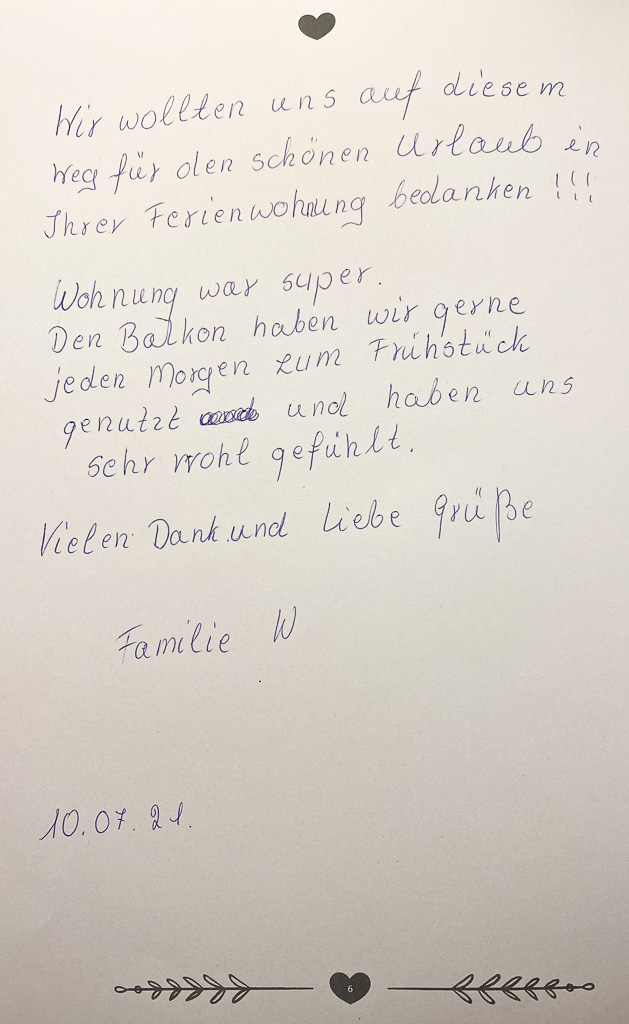 Wir wollten uns auf diesem
Weg für den schönen Urlaub in
Ihrer Ferienwohnung bedanken !!!
Wohnung war super.
Den Balkon haben wir gerne
jeden Morgen zum Frühstück
genutzt und haben uns
sehr wohl gefühlt.
Vielen Dank und Liebe Grüße
Familie W
10.07.21.
6